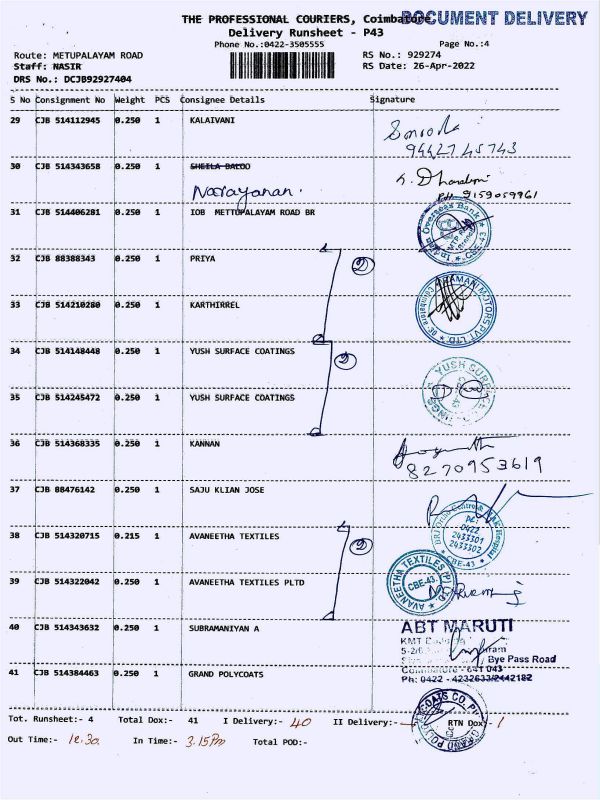 THE PROFESSIONAL COURIERS, Coimbatore.
DOCUMENT DELIVERY
Delivery Runsheet - P43
Phone No.:0422-3505555 Page No.:4
Route: METUPALAYAM ROAD RS No.: 929274
Staff: NASIR RS Date: 26-Apr-2022
DRS No.: DCJB92927404
S No Consignment No Weight PCS Consignee Details Signature
29 CJB 514112945 0.250 1 KALAIVANI
94427 45743
30 CJB 514343658 0.250 1 SHEILA BALOO
Narayanan.
9159059961
31 CJB 514406281 0.250 1 IOB METTUPALAYAM ROAD BR
Indian Overseas Bank
CBE-43
32 CJB 88388343 0.250 1 PRIYA
2
33 CJB 514210280 0.250 1 KARTHIRREL
MOTORS PVT LTD.
34 CJB 514148448 0.250 1 YUSH SURFACE COATINGS
2
YUSH SURFACE
CBE-43
35 CJB 514245472 0.250 1 YUSH SURFACE COATINGS
36 CJB 514368335 0.250 1 KANNAN
8270953619
37 CJB 88476142 0.250 1 SAJU KLIAN JOSE
38 CJB 514320715 0.215 1 AVANEETHA TEXTILES
2
0422
2433301
2433302
CBE-43
39 CJB 514322042 0.250 1 AVANEETHA TEXTILES PLTD
AVANEETHA TEXTILES (P) Ltd
CBE-43.
40 CJB 514343632 0.250 1 SUBRAMANIYAN A
ABT MARUTI
Bye Pass Road
Coimbatore - 641 043
Ph: 0422 - 4232633/2442182
41 CJB 514384463 0.250 1 GRAND POLYCOATS
GRAND POLYCOATS CO. P
Tot. Runsheet:- 4 Total Dox:- 41 I Delivery:- 40 II Delivery:- RTN Dox:- 1
Out Time:- 12.30. In Time:- 3.15Pm Total POD:-